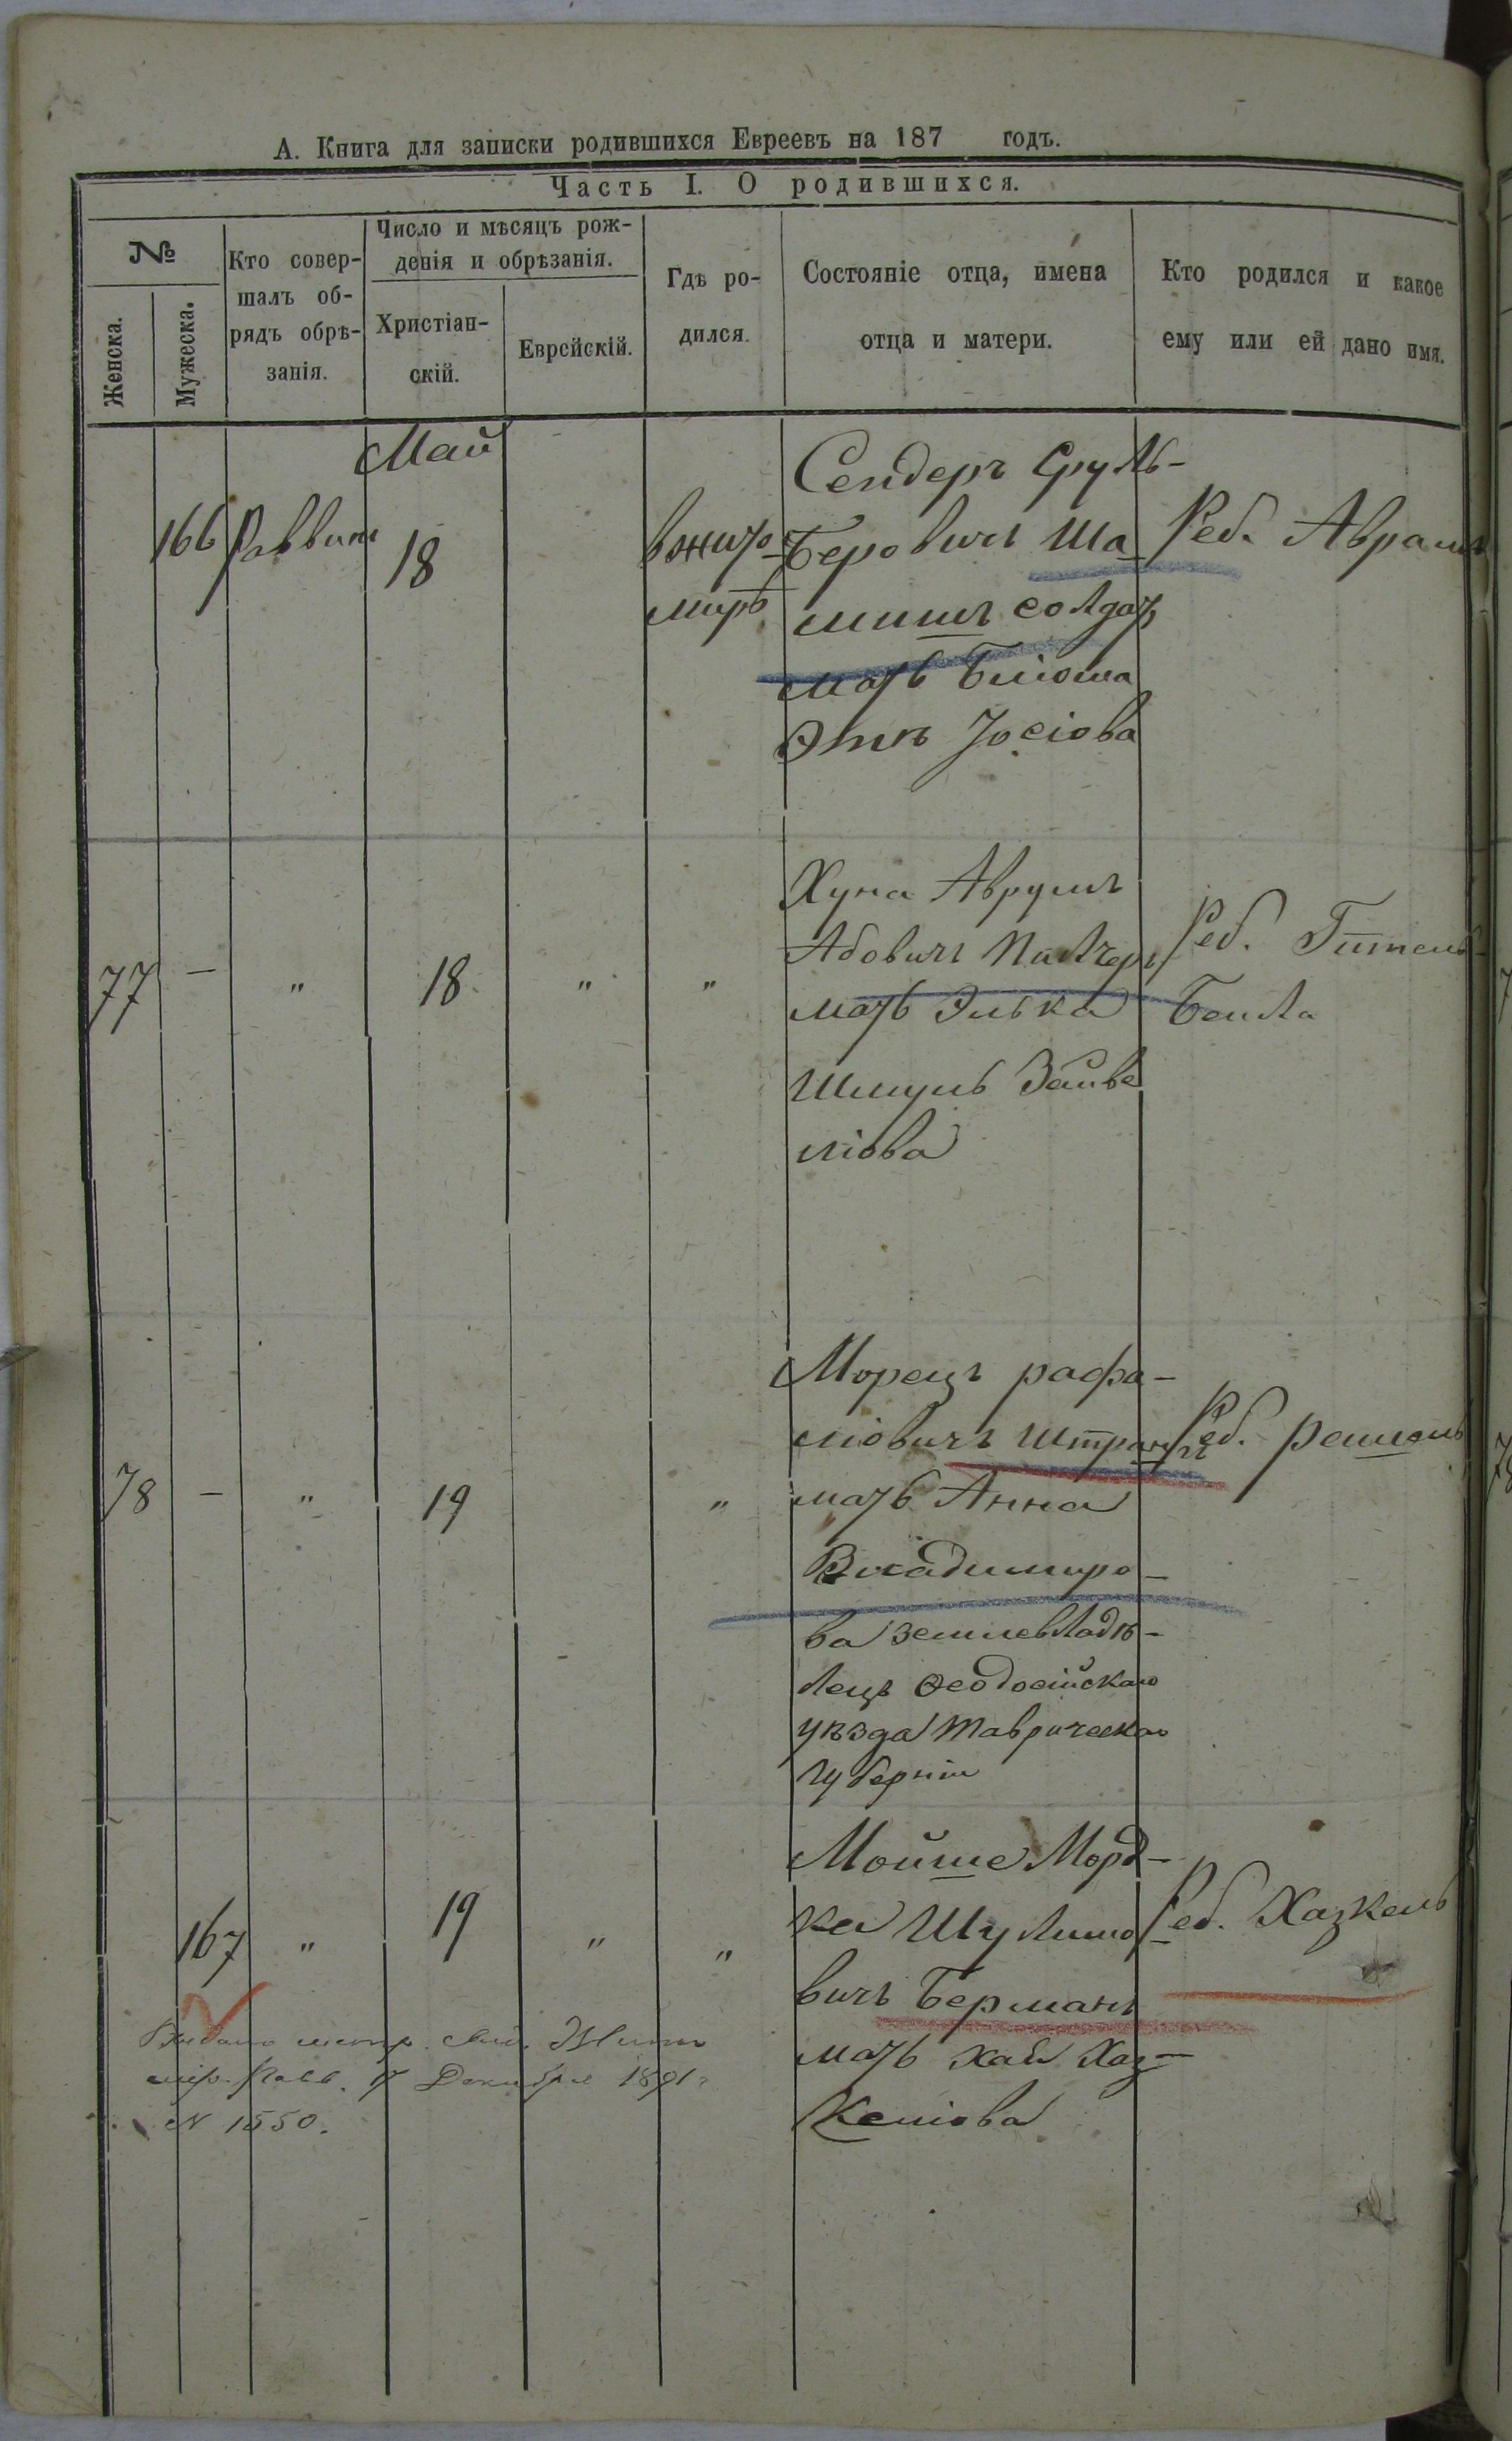 А. Книга для записки родившихся Евреевъ на 187 годъ.
Часть I. О родившихся.
№
Женска.
Мужеска.
Кто совер-
шалъ об-
рядъ обрѣ-
занія.
Число и мѣсяцъ рож-
денія и обрѣзанія.
Христіан-
скій.
Еврейскій.
Гдѣ ро-
дился.
Состояніе отца, имена
отца и матери.
Кто родился и какое
ему или ей дано имя.
Май
166 Раввинъ 18
вжито-
мирѣ
Сендеръ Сруль-
Беровичъ Ша
мишъ солдатъ
мать Блюма
Этя Іосіова
Реб. Аврамъ
77 — " 18 " "
Хуна Аврумъ
Абовичъ Пилчеръ
мать Элька
Шмуль Зайве
ліова
Реб. Гитель
Бейла
78 — " 19 "
Морецъ рафа-
ліовичъ Штрамъ
мать Анна
Владимиро-
ва землевладѣ-
лецъ Ѳеодосійскаго
уѣзда Таврическаго
губерніи
Реб. Рашель
167 " 19 " "
Мойше Морд-
ка Шулимо
вичъ Берманъ
мать Хая Хаз-
келіова
Реб. Хазкель
Выдано метр. свид. Жито
мір. Равв. 17 Декабря 1891 г
N 1550.